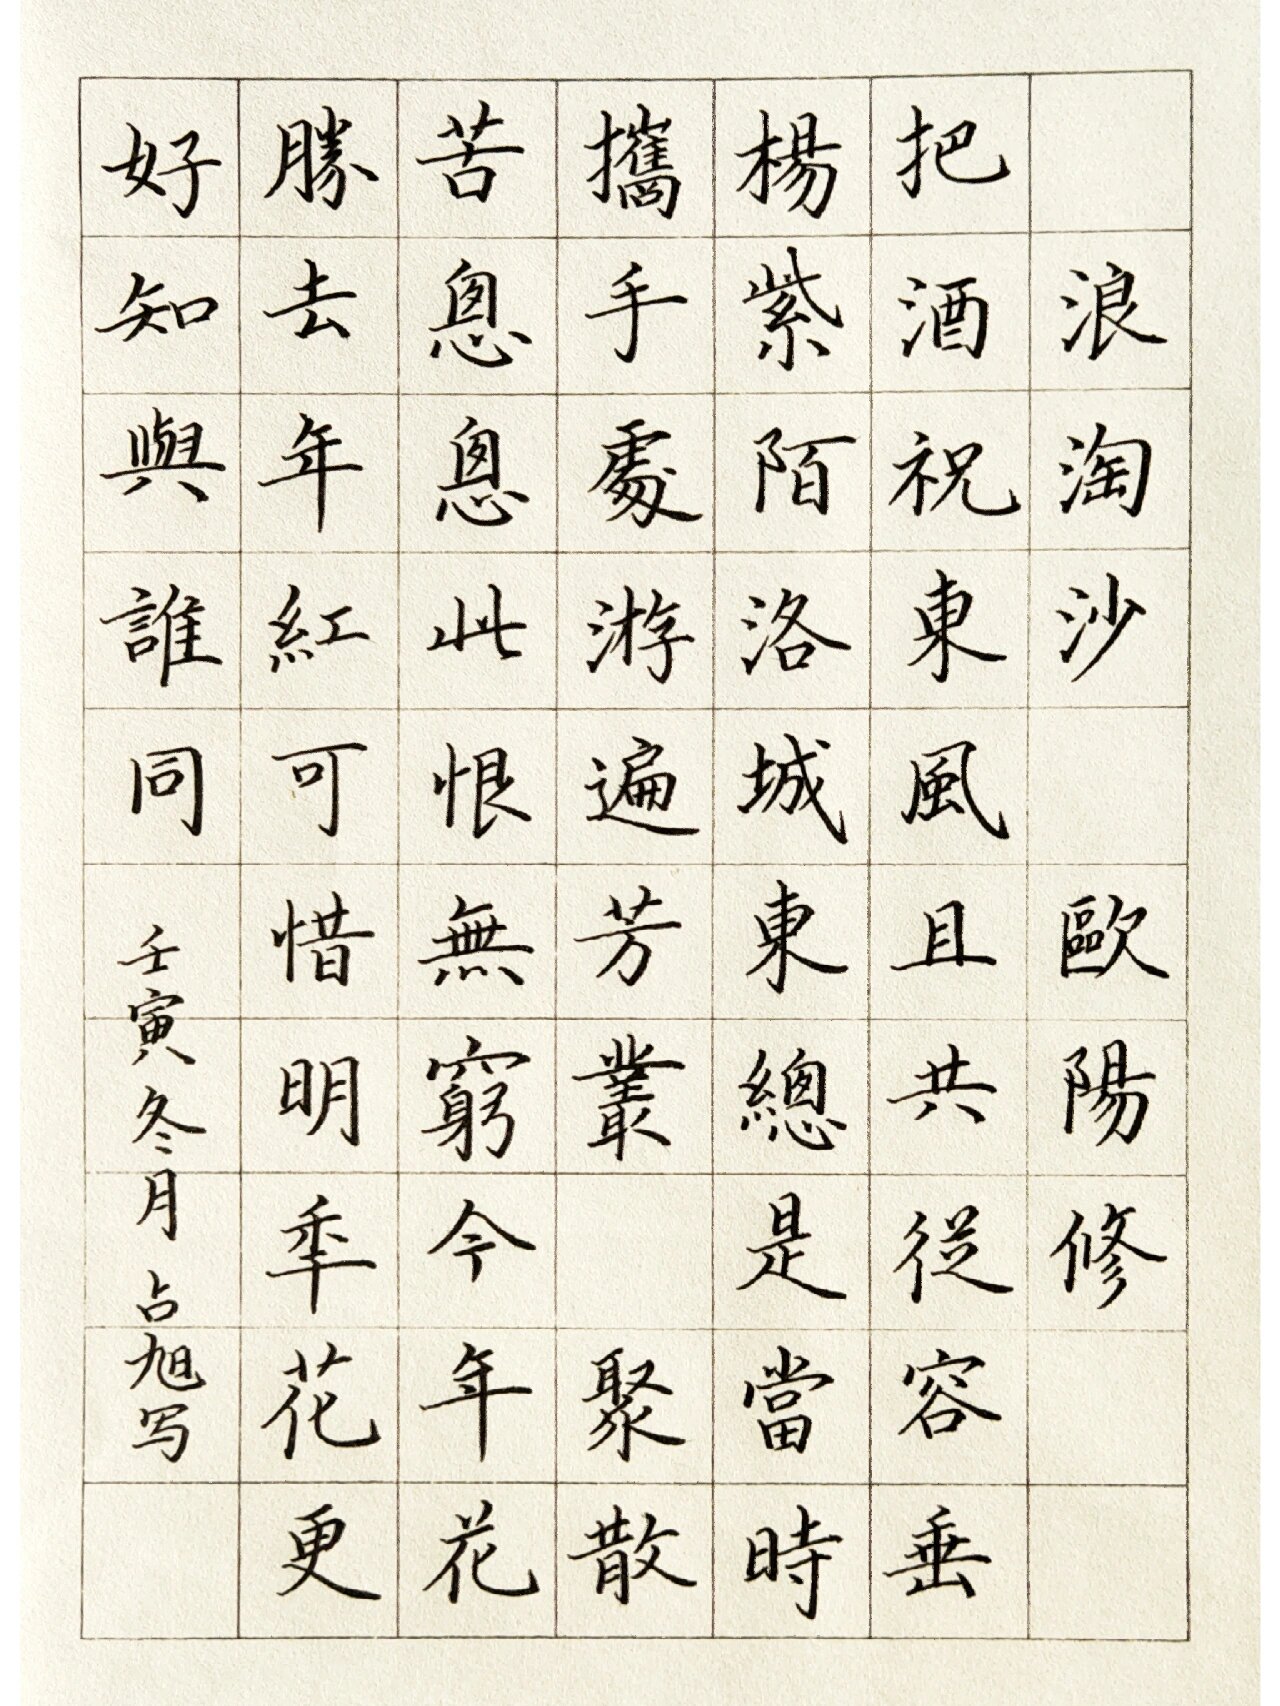 浪淘沙 歐陽修
把酒祝東風且共從容垂
楊紫陌洛城東總是當時
攜手處游遍芳叢 聚散
苦悤悤此恨無窮今年花
勝去年紅可惜明年花更
好知與誰同
壬寅冬月占旭写